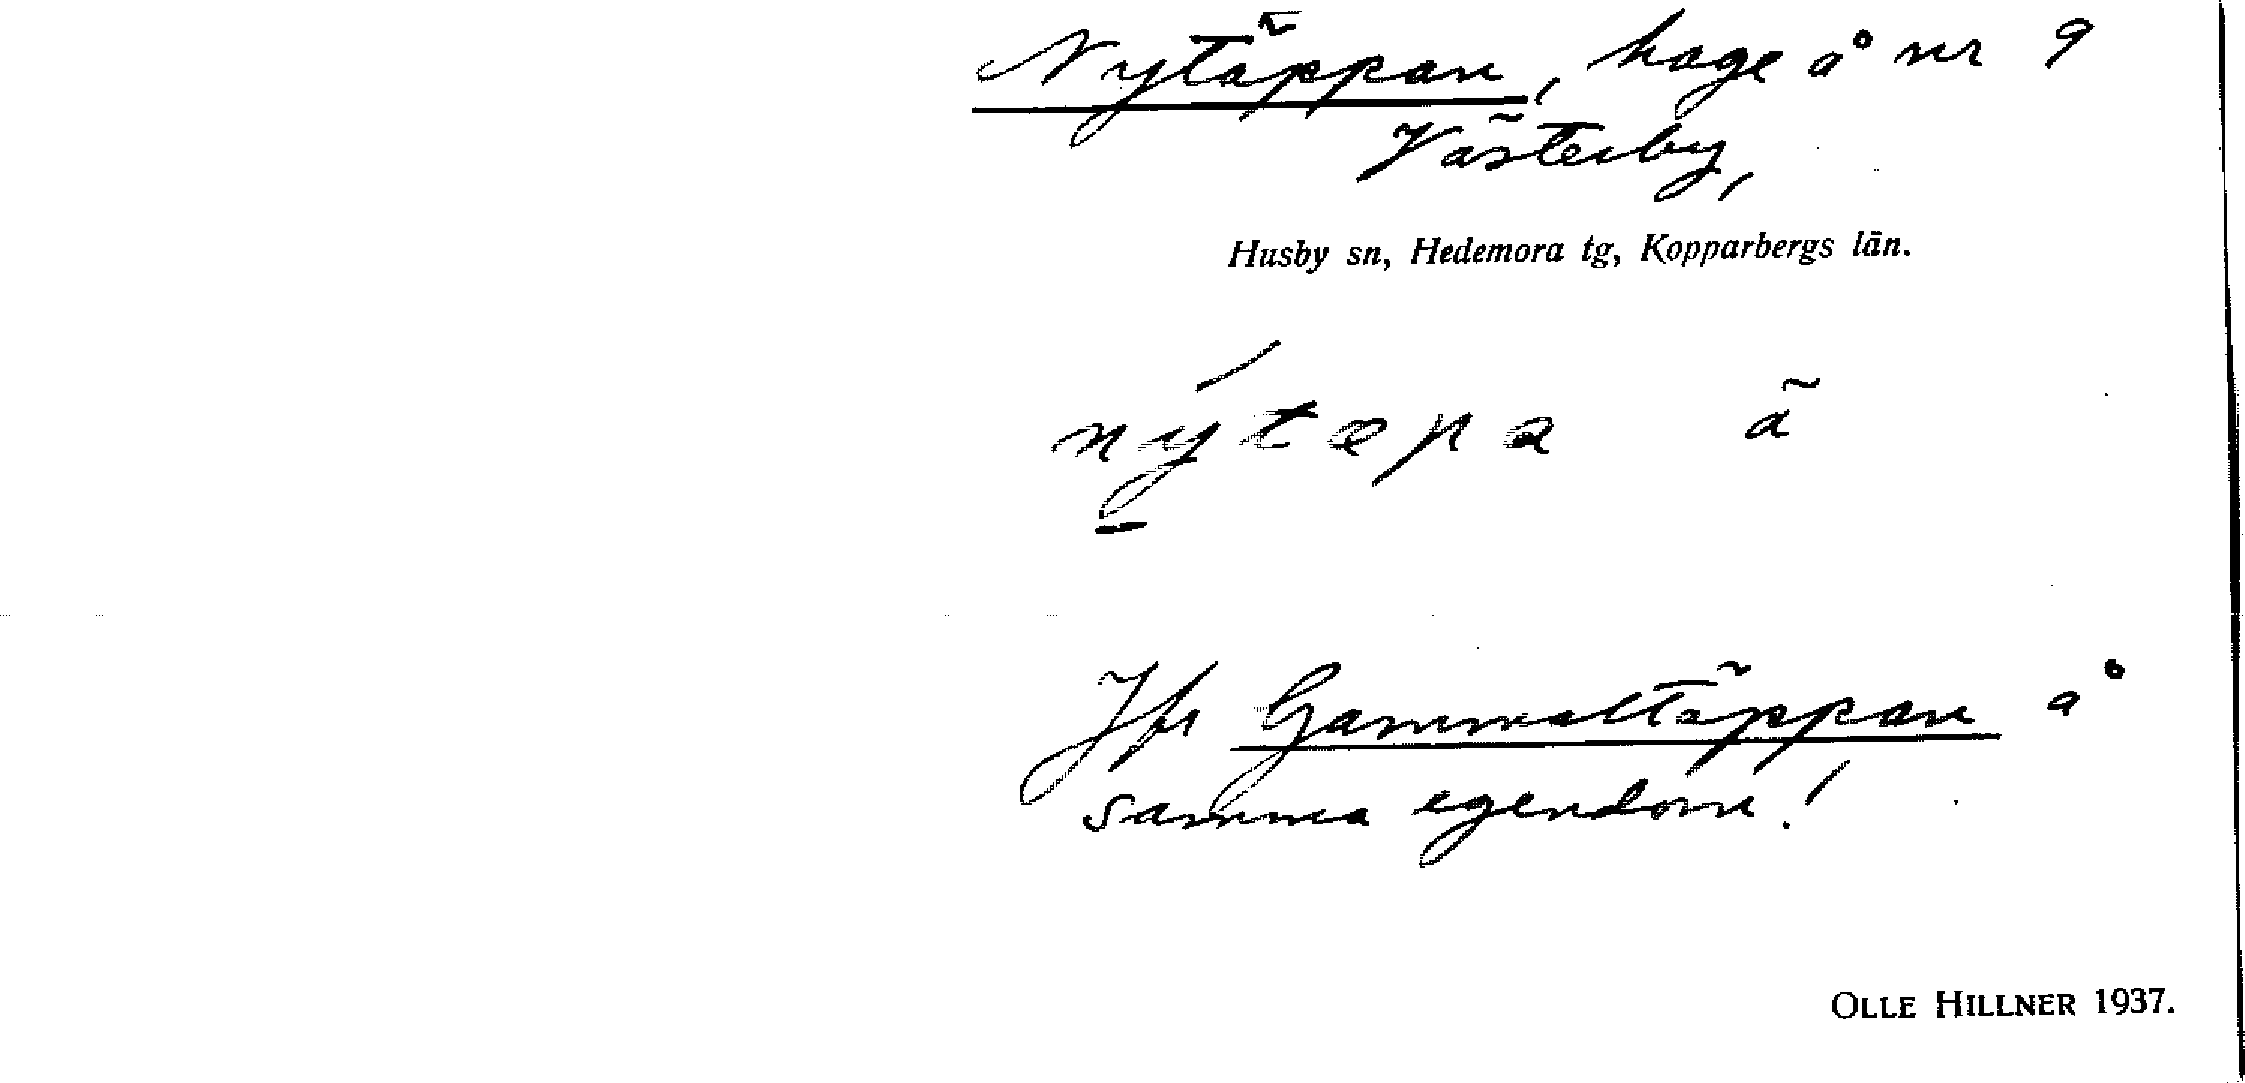 Nytäppan, hage å nr 9
Västerby,
Husby sn, Hedemora tg, Kopparbergs län.
nýtæpa ä
Jfr Gammaltäppan å
samma egendom!
OLLE HILLNER 1937.